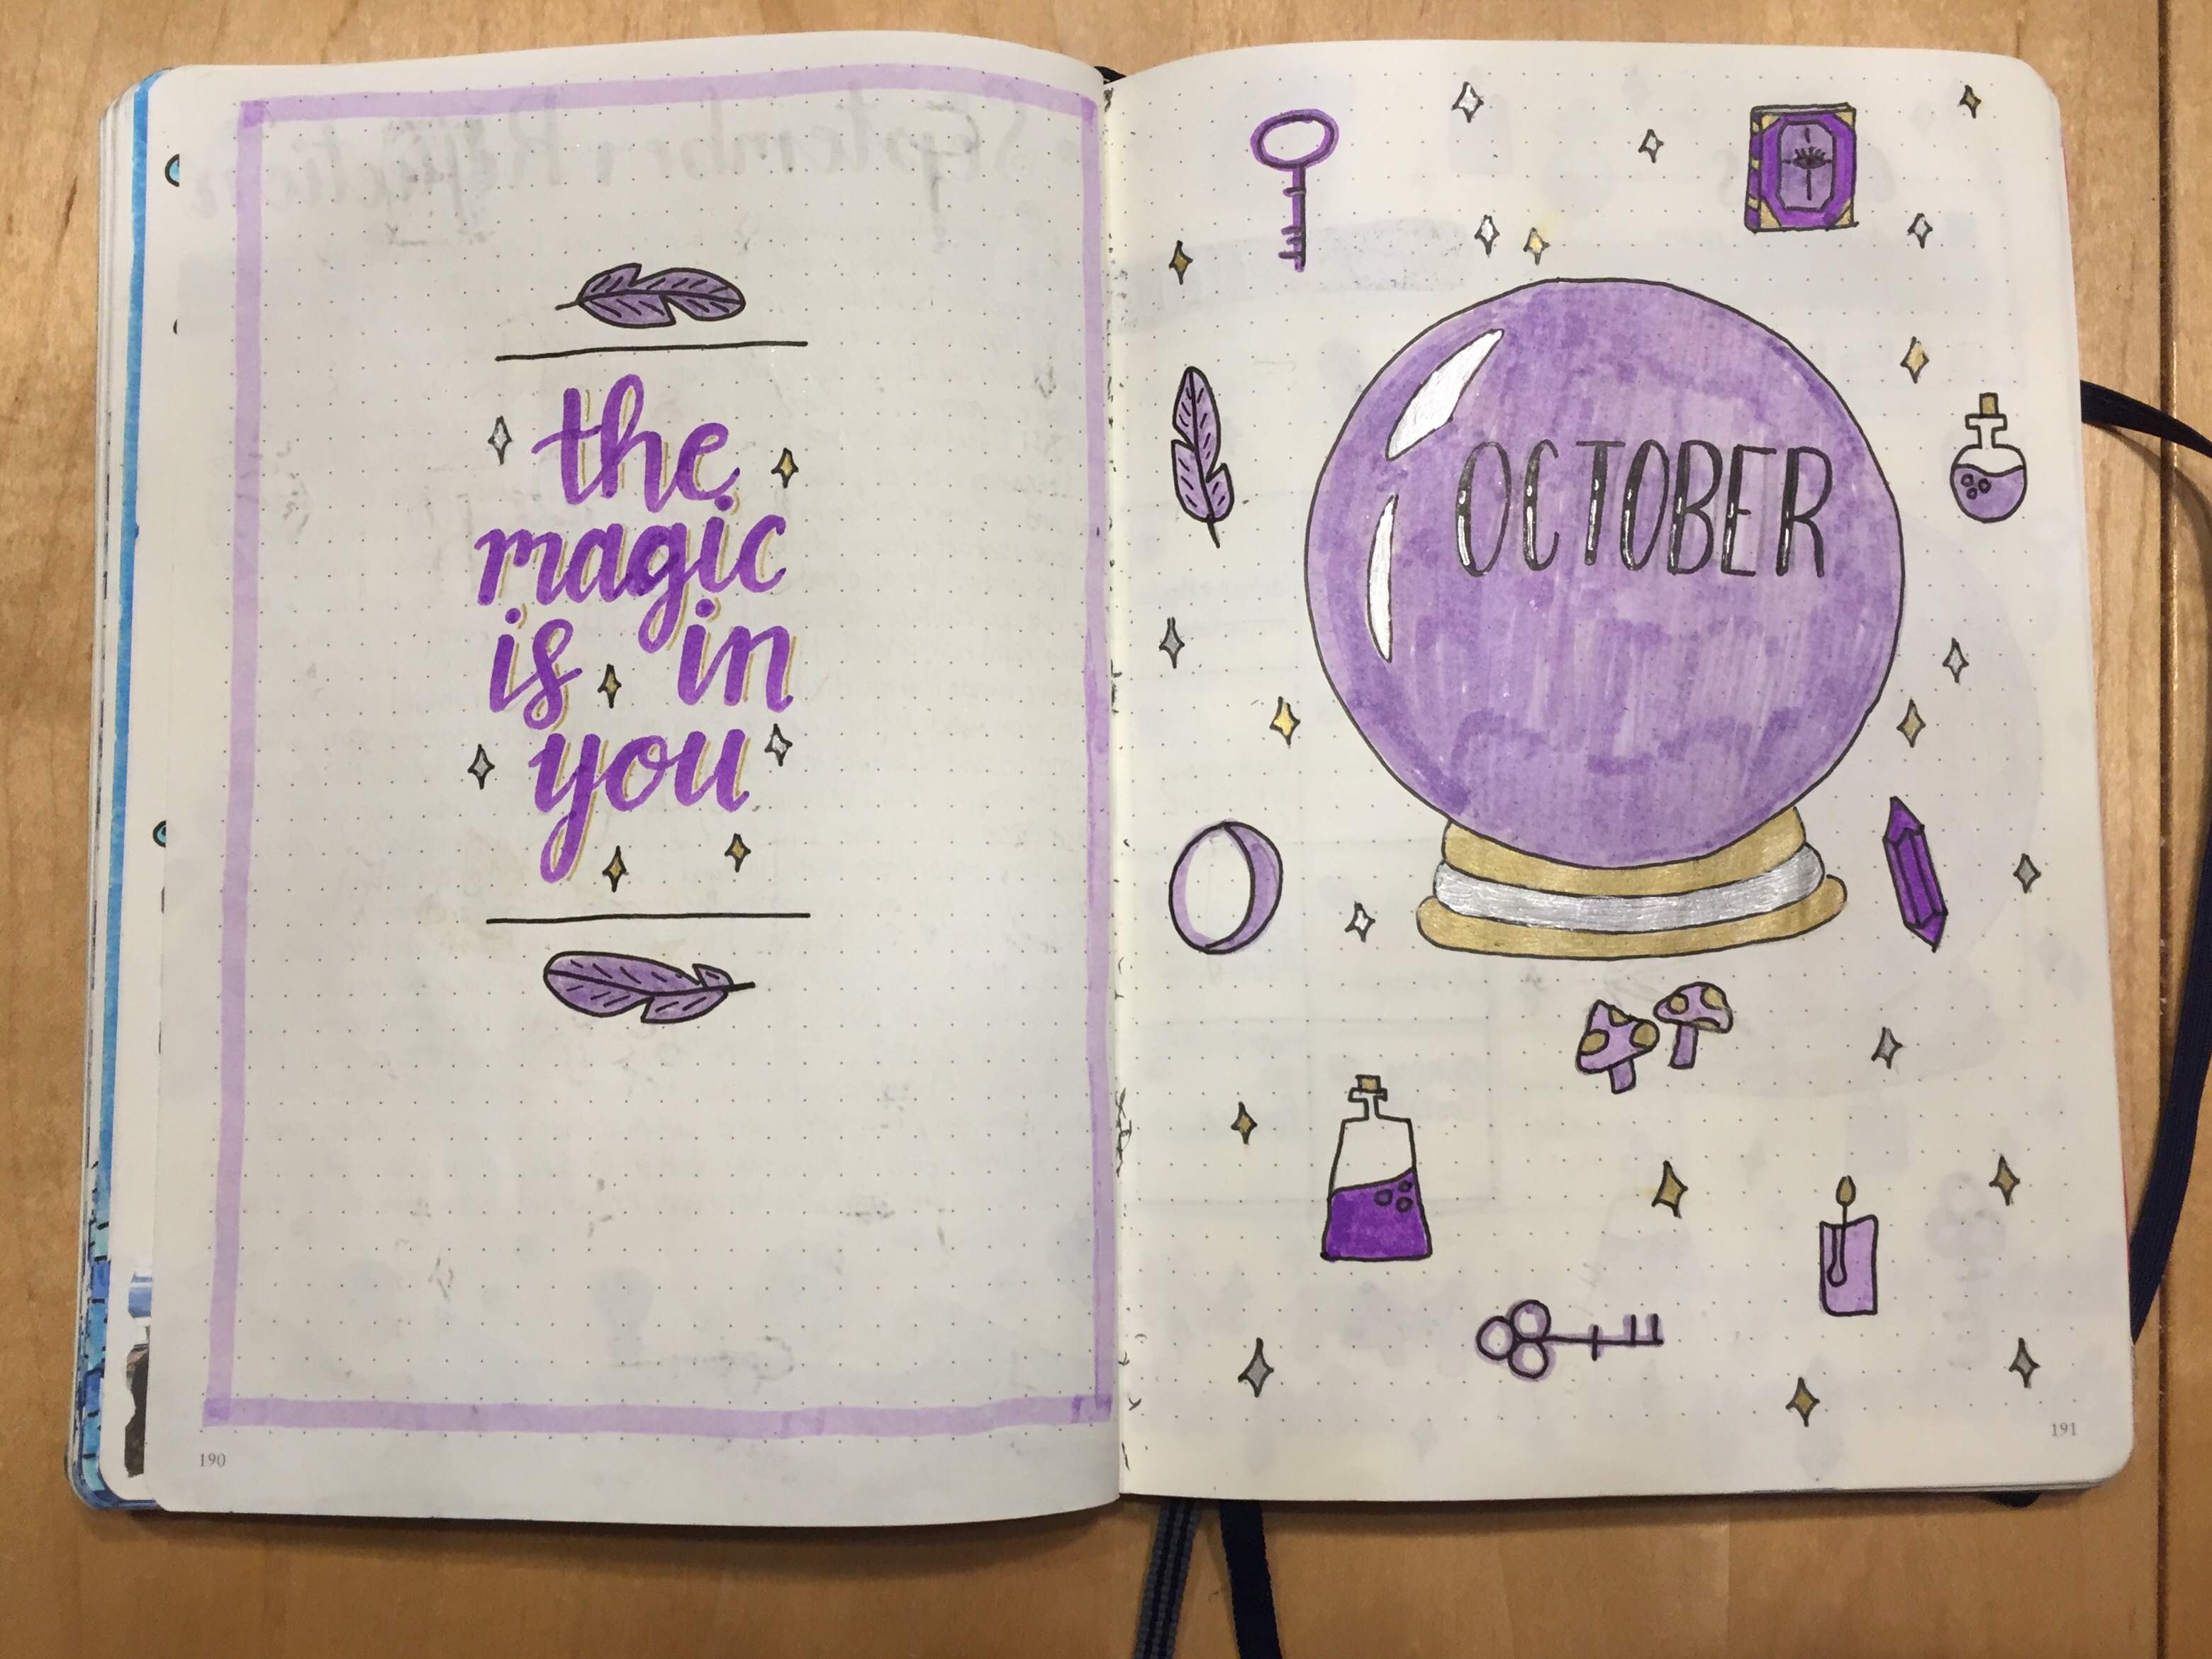 the
magic
is in
you
190
OCTOBER
191